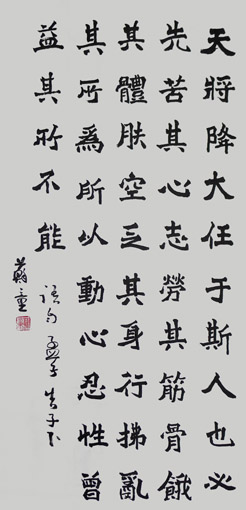 天將降大任于斯人也必
先苦其心志勞其筋骨餓
其體肤空乏其身行拂亂
其所爲所以動心忍性曾
益其所不能
孟子告子下